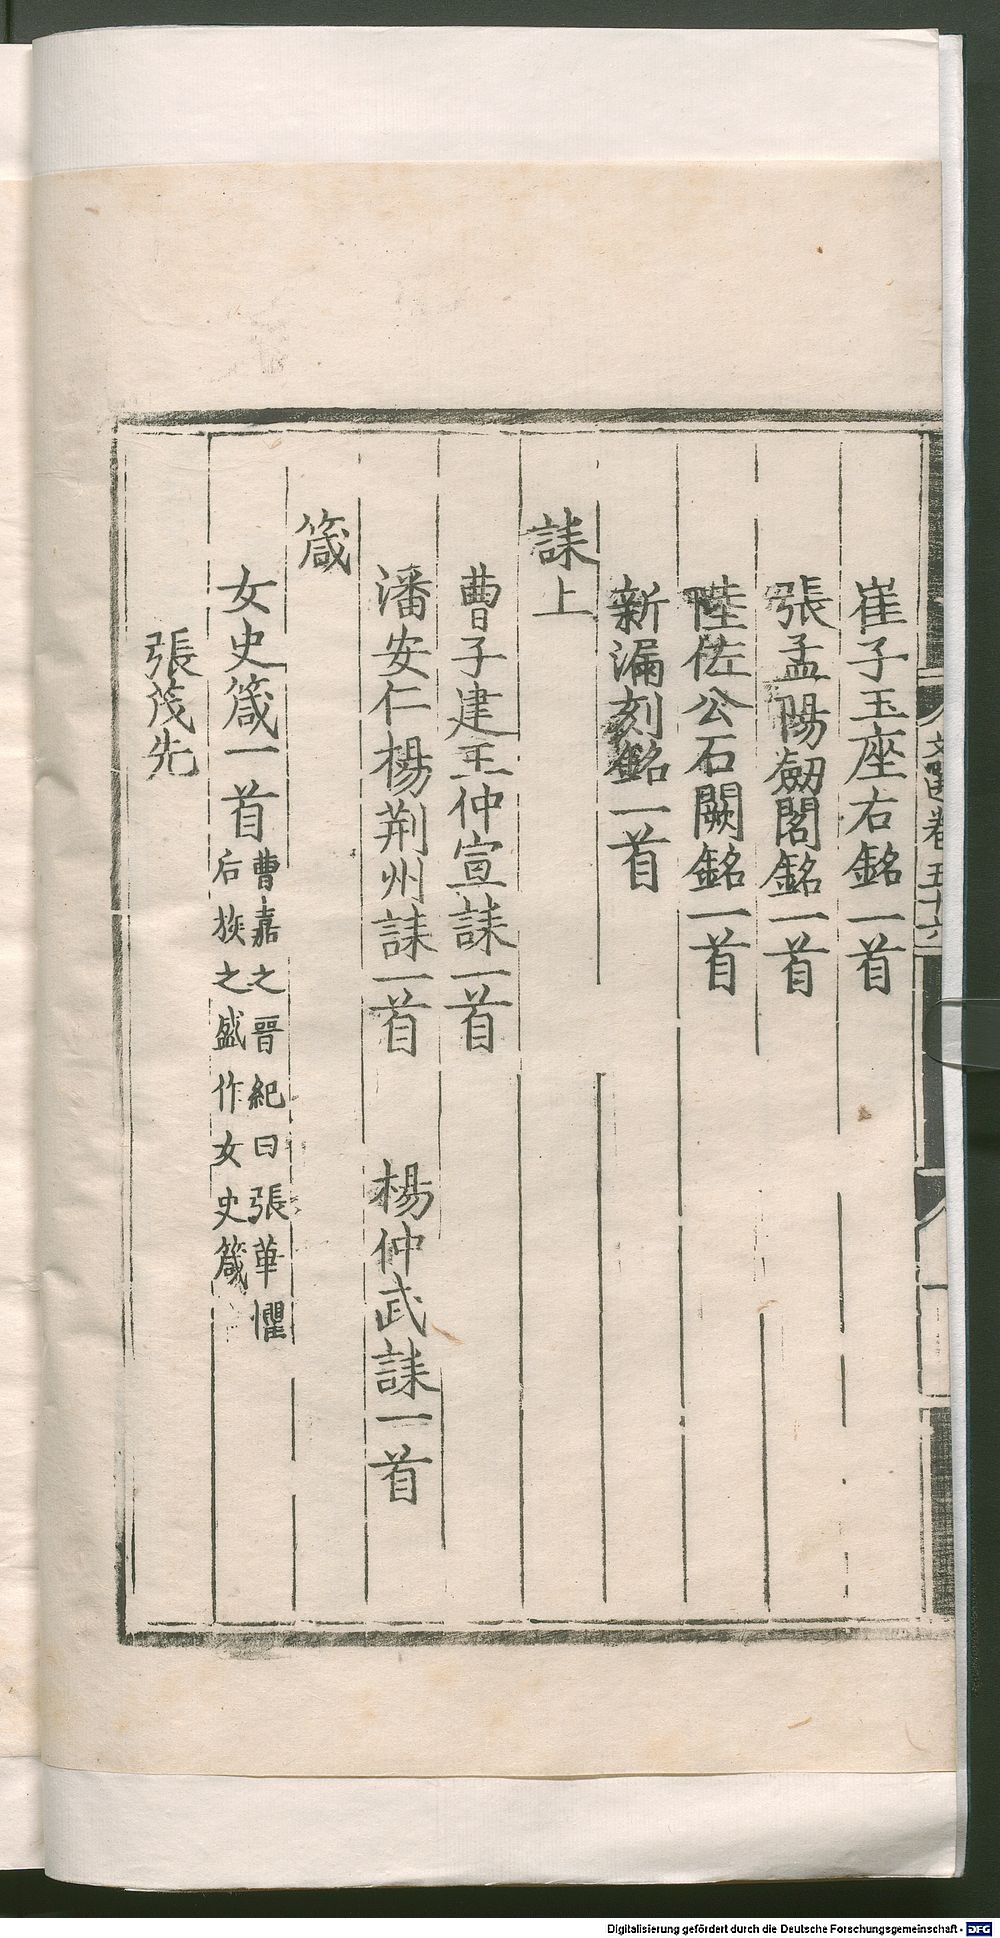 文選卷五十六
崔子玉座右銘一首
張孟陽劔閣銘一首
陸佐公石闕銘一首
新漏刻銘一首
誄上
曹子建王仲宣誄一首
潘安仁楊荆州誄一首 楊仲武誄一首
箴
女史箴一首 曹嘉之晉紀曰張華懼
后族之盛作女史箴
張茂先
Digitalisierung gefördert durch die Deutsche Forschungsgemeinschaft - DFG